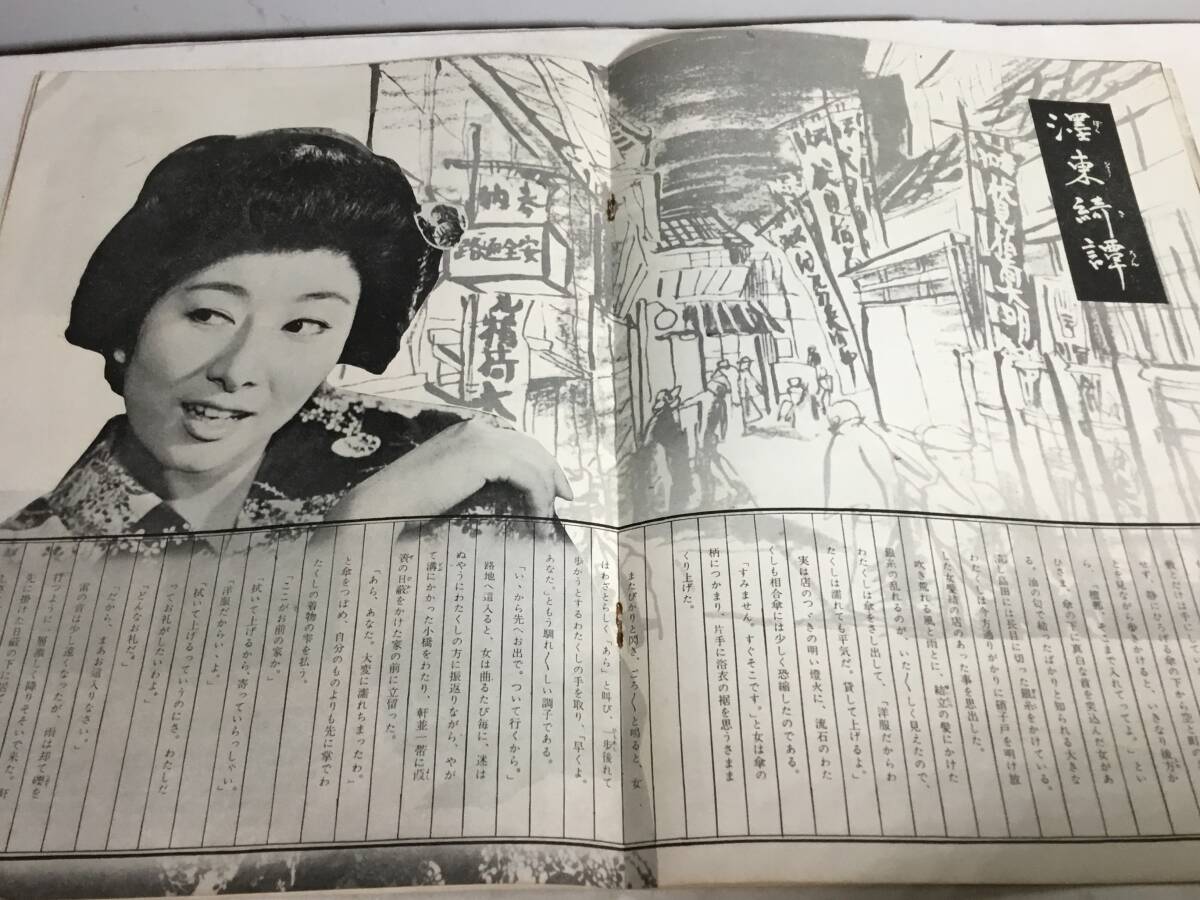 濹東綺譚
戦とだけはわたくしも手にし
せず、静にひろげる傘の下から空と町のさま
とを見ながら歩きかけると、いきなり後方から
「檀那、そこまで入れてってよ。」といい
ひさま、傘の下に真白な首を突込んだ女があ
る。油の匂で結ったばかりと知られる大きな
潰し島田には長目に切った銀糸をかけている。
わたくしは今方通りがかりに硝子戸を明け放
した女髪結の店のあった事を思出した。
吹き荒れる風と雨とに、結立の髪にかけた
銀糸の乱れるのが、いたいたしく見えたので、
わたくしは傘をさし出して、「洋服だからわ
たくしは濡れても平気だ。貸して上げるよ」
実は店のつゞきの明い燈火に、流石のわた
くしも相合傘には少しく恐縮したのである。
「すみません、すぐそこです。」と女は傘の
柄につかまり、片手に浴衣の裾を思うさまま
くり上げた。
またぴかりと閃き、ごろ〳〵と鳴ると、女
はわざとらしく「あら」と叫び、一歩後れて
歩かうとするわたくしの手を取り、「早くよ。
あなた。」ともう馴れ〳〵しい調子である。
「いゝから先へお出で。ついて行くから。」
路地へ這入ると、女は曲るたび毎に、迷は
ぬやうにわたくしの方に振返りながら、やが
て溝にかかった小橋をわたり、軒並一帯に葭
簀の日蔽をかけた家の前に立留った。
「あら、あなた。大変に濡れちまったわ。」
と傘をつぼめ、自分のものよりも先に掌でわ
たくしの着物の雫を払う。
「ここがお前の家か。」
「拭いて上げるから、寄っていらっしゃい。」
「洋服だからいいよ。」
「拭いて上げるっていうのにさ。わたしだ
ってお礼がしたいわよ。」
「どんなお礼だ。」
「だから、まあお這入りなさい。」
雷の音は少し遠くなったが、雨は却て礫を
打つように一層激しく降りそそいで来た。軒
先に掛けた日蔽の下に居て
安全通路